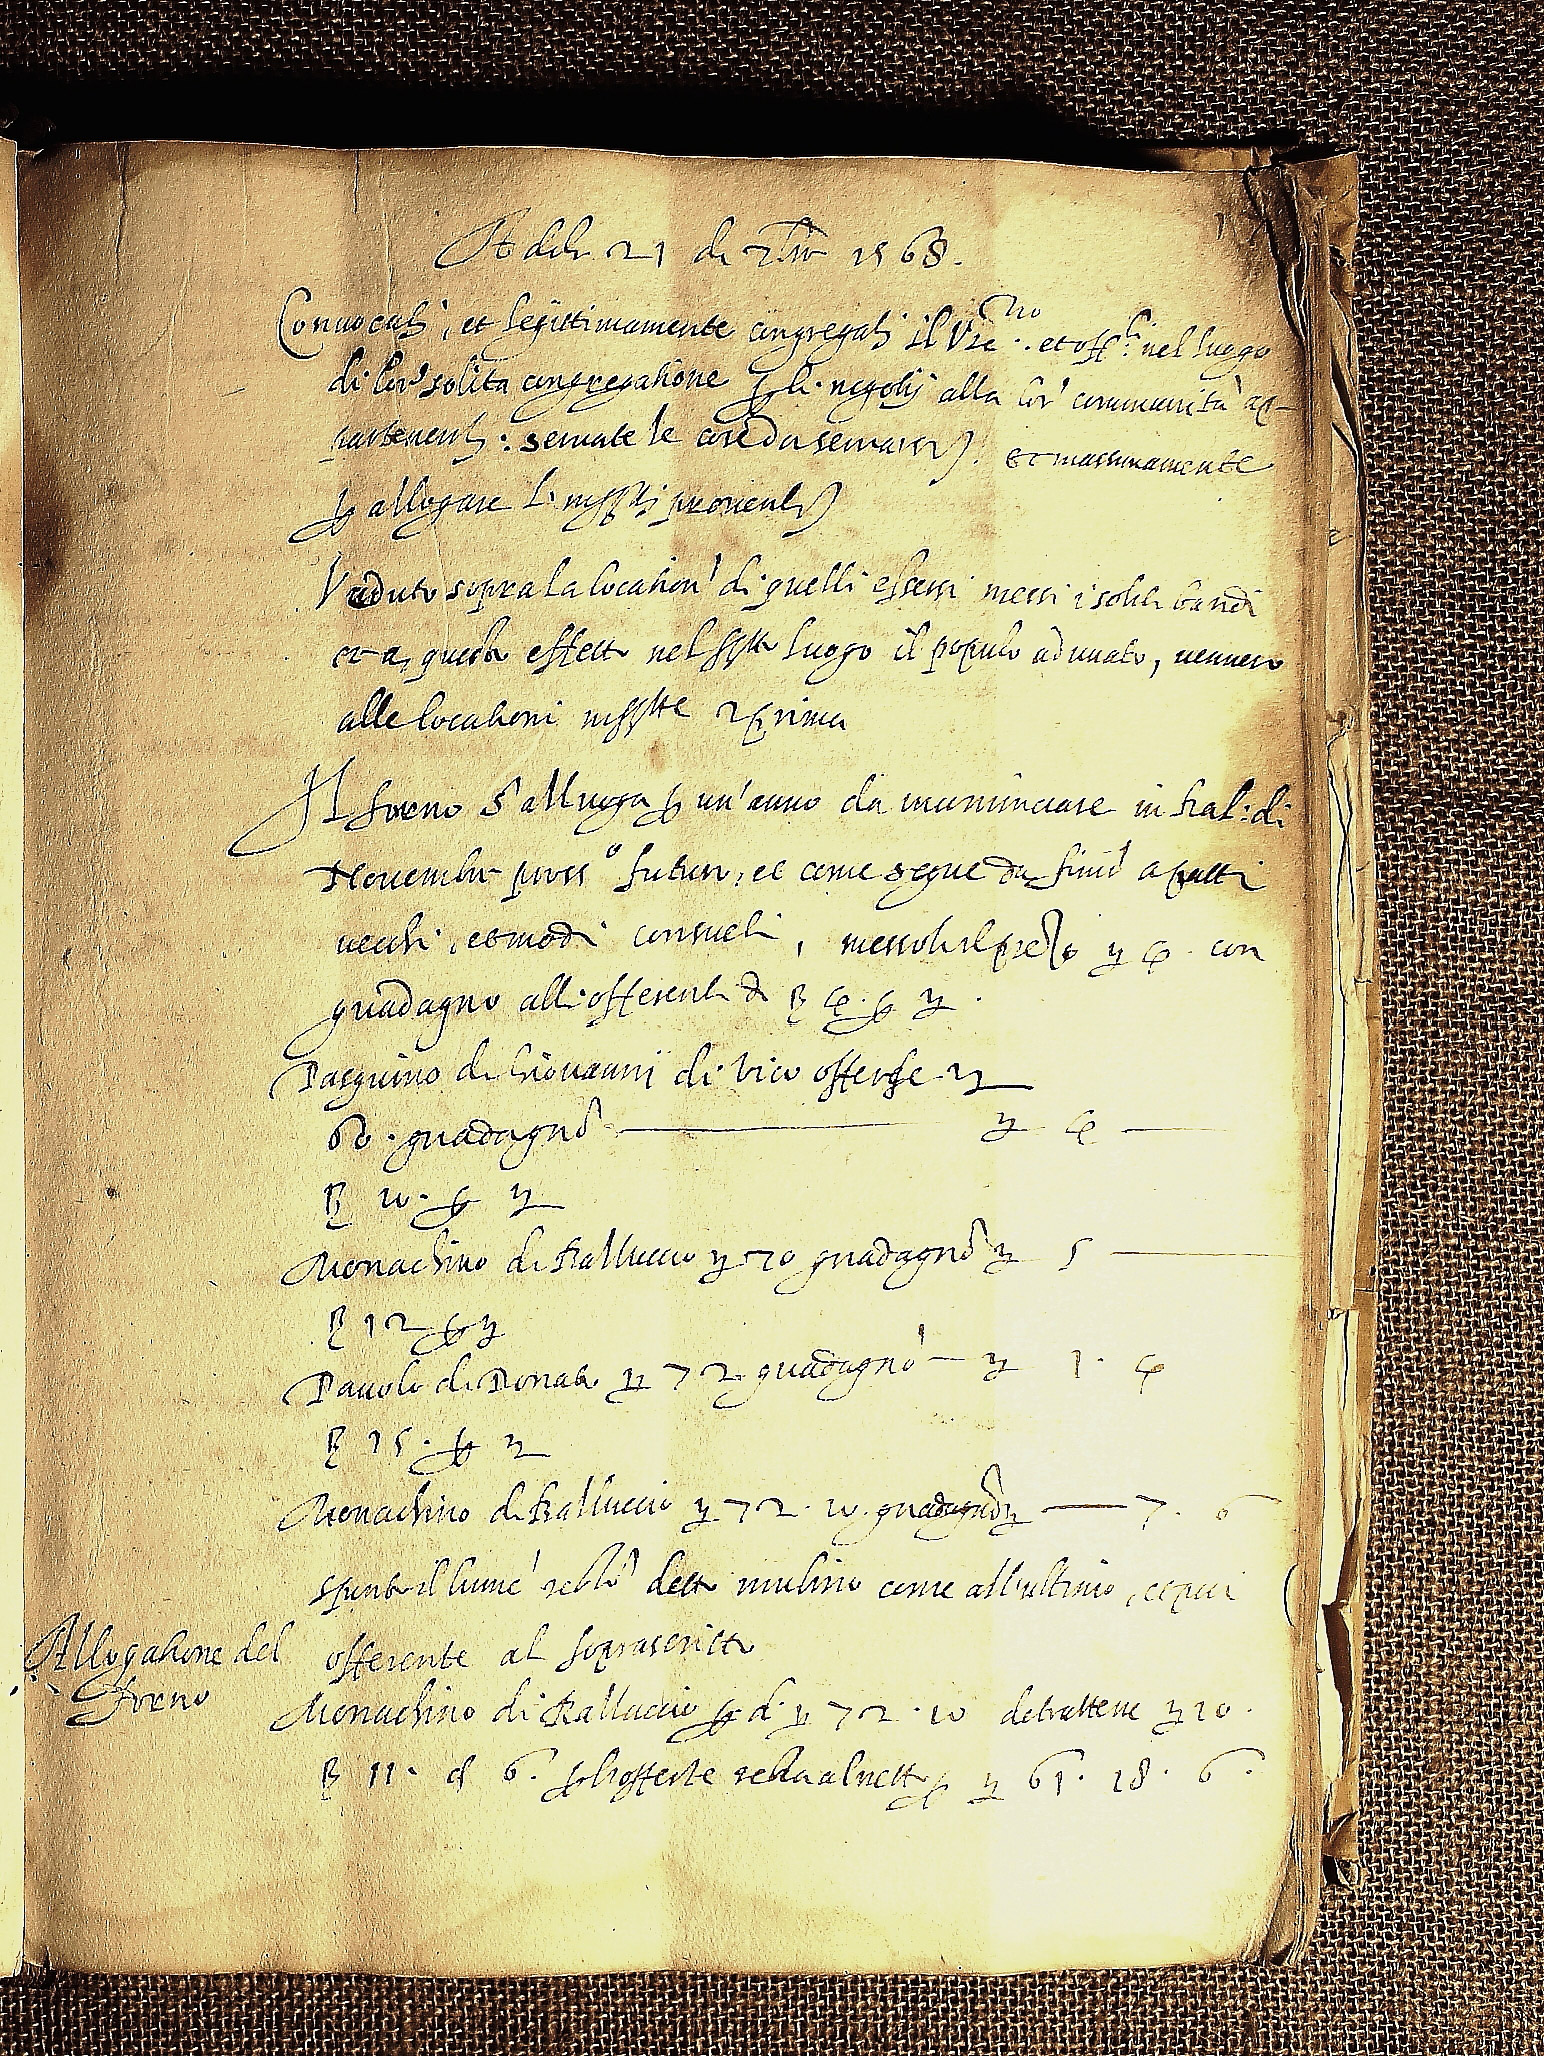 A dì 21 di 7bre 1568.
Convocati, et legittimamente congregati il Vic.rio et offli: nel luogo
di lor' solita congregatione p li negotij alla lor' communità ap-
partenenti: servate le cose da servarsi). et massimamente
p allogare l'i proventi)
Veduto sopra la location' di quelli essersi messi i soliti bandi
et a questo effetto nel luogo il populo adunato, vennero
alle locationi prima
Il freno s'alluoga p un'anno da incuminciare in kal: di
Novembre pross.o futuro, et come segue da finir' a patti
vecchi, et modi consueti, messoli il prezo con
guadagno alli offerenti di
Pasquino di Giovanni di Vico offerse
60. guadagno
ß 10. p
Monachino di Ralluccio 70 guadagno 5
ß 12 p
Pavolo di Donato 72 guadagno' 1.
ß 15. p
Monachino di Ralluccio 72. 10. guadagno 7. 6
spento il lume' restò detto mulino come all'ultimo, et più
offerente al soprascritto
Allogatione del
freno
Monachino di Ralluccio p di 72. 10 detrattene 10.
ß 11. d 6. p l'offerte resta al netto p 61. 18. 6.